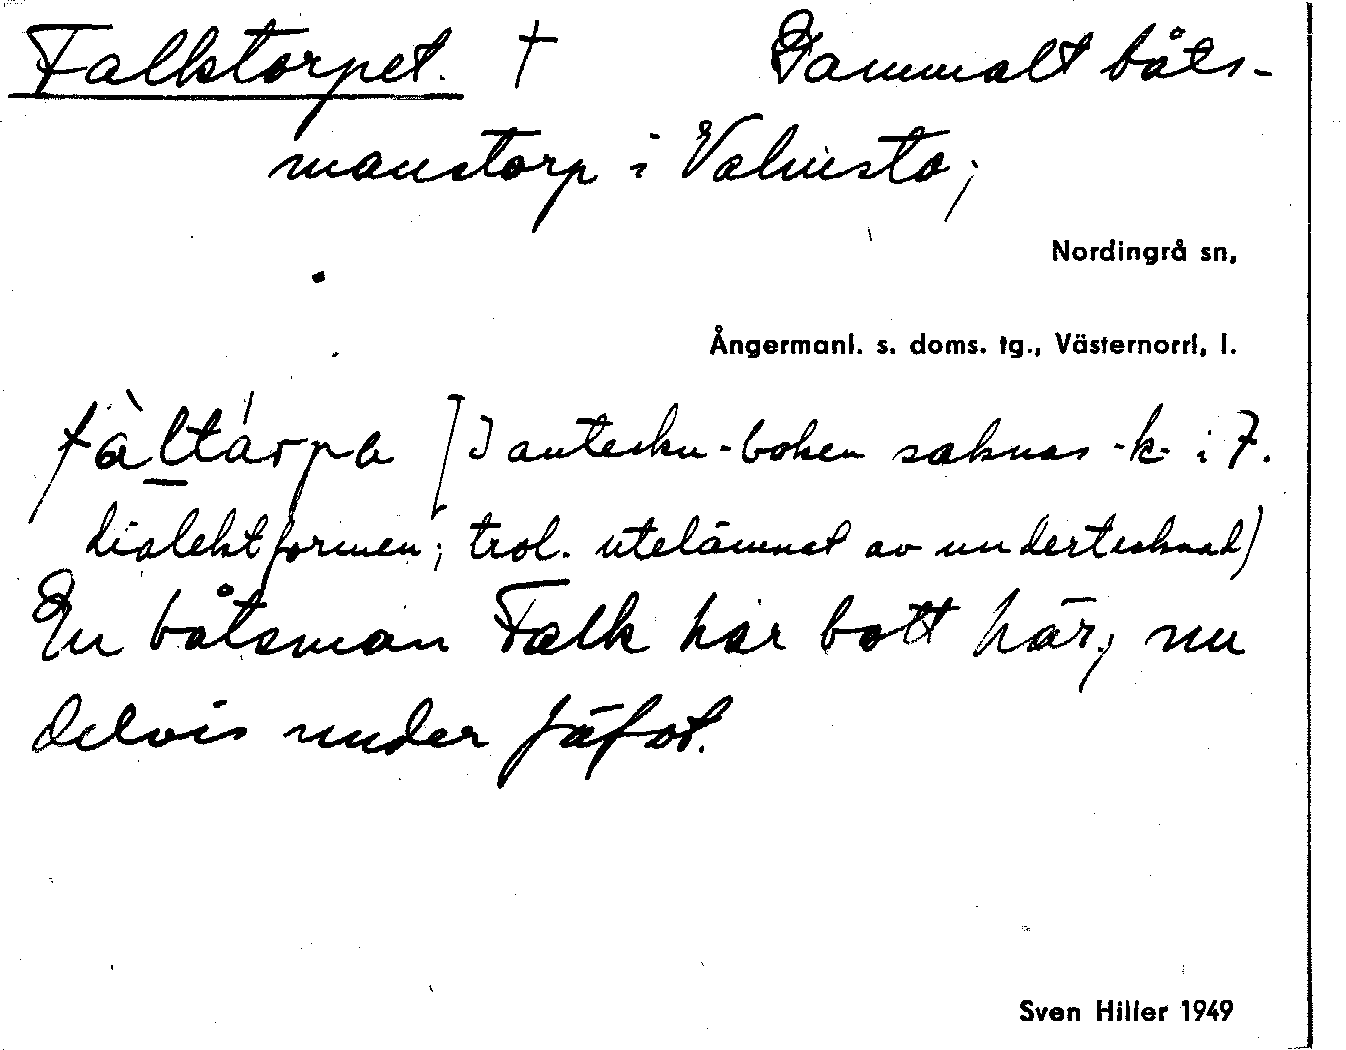 Falktorpet. † Gammalt båts-
manstorp i Valvesta;
Nordingrå sn,
Ångermanl. s. doms. tg., Västernorrl, l.
fàltárpa [I anteckn-boken saknas -k- i
dialektformen; trol. utelämnat av undertecknad)
En båtsman Falk har bott här, nu
delvis under fäfot.
Sven Hiller 1949